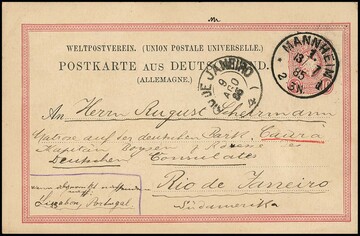 WELTPOSTVEREIN. (UNION POSTALE UNIVERSELLE.)
POSTKARTE AUS DEUTSCHLAND.
(ALLEMAGNE.)
MANNHEIM
13 1
85
2-3N
RIO DE JANEIRO
An Herrn August
Matrose auf der deutschen Bark
Kapitän Boysen p Adresse des
Deutschen Consulates
Rio de Janeiro
Südamerika
Lissabon, Portugal